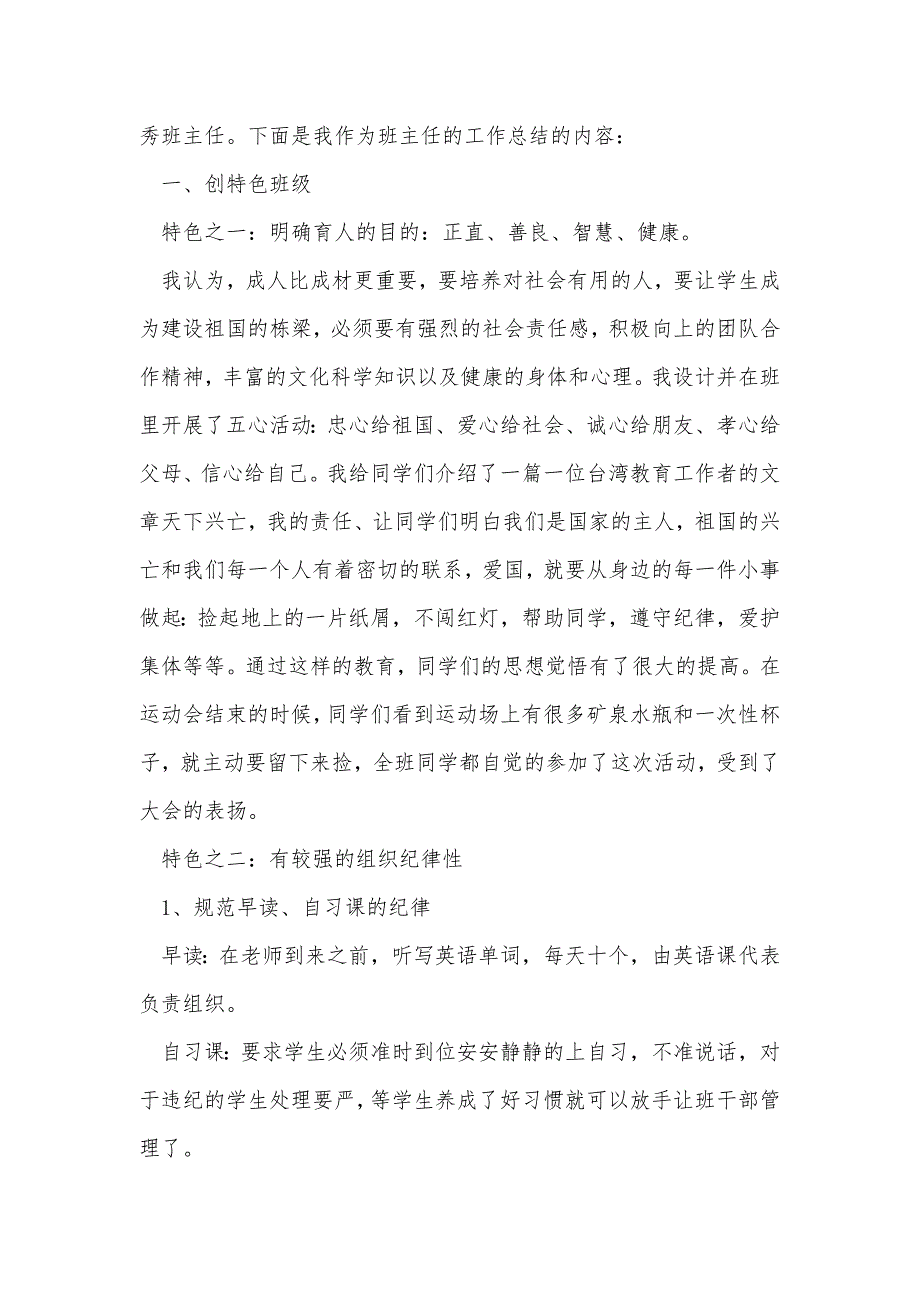 秀班主任。下面是我作为班主任的工作总结的内容：
一、创特色班级
特色之一：明确育人的目的：正直、善良、智慧、健康。
我认为，成人比成材更重要，要培养对社会有用的人，要让学生成
为建设祖国的栋梁，必须要有强烈的社会责任感，积极向上的团队合
作精神，丰富的文化科学知识以及健康的身体和心理。我设计并在班
里开展了五心活动：忠心给祖国、爱心给社会、诚心给朋友、孝心给
父母、信心给自己。我给同学们介绍了一篇一位台湾教育工作者的文
章天下兴亡，我的责任、让同学们明白我们是国家的主人，祖国的兴
亡和我们每一个人有着密切的联系，爱国，就要从身边的每一件小事
做起：捡起地上的一片纸屑，不闯红灯，帮助同学，遵守纪律，爱护
集体等等。通过这样的教育，同学们的思想觉悟有了很大的提高。在
运动会结束的时候，同学们看到运动场上有很多矿泉水瓶和一次性杯
子，就主动要留下来捡，全班同学都自觉的参加了这次活动，受到了
大会的表扬。
特色之二：有较强的组织纪律性
1、规范早读、自习课的纪律
早读：在老师到来之前，听写英语单词，每天十个，由英语课代表
负责组织。
自习课：要求学生必须准时到位安安静静的上自习，不准说话，对
于违纪的学生处理要严，等学生养成了好习惯就可以放手让班干部管
理了。